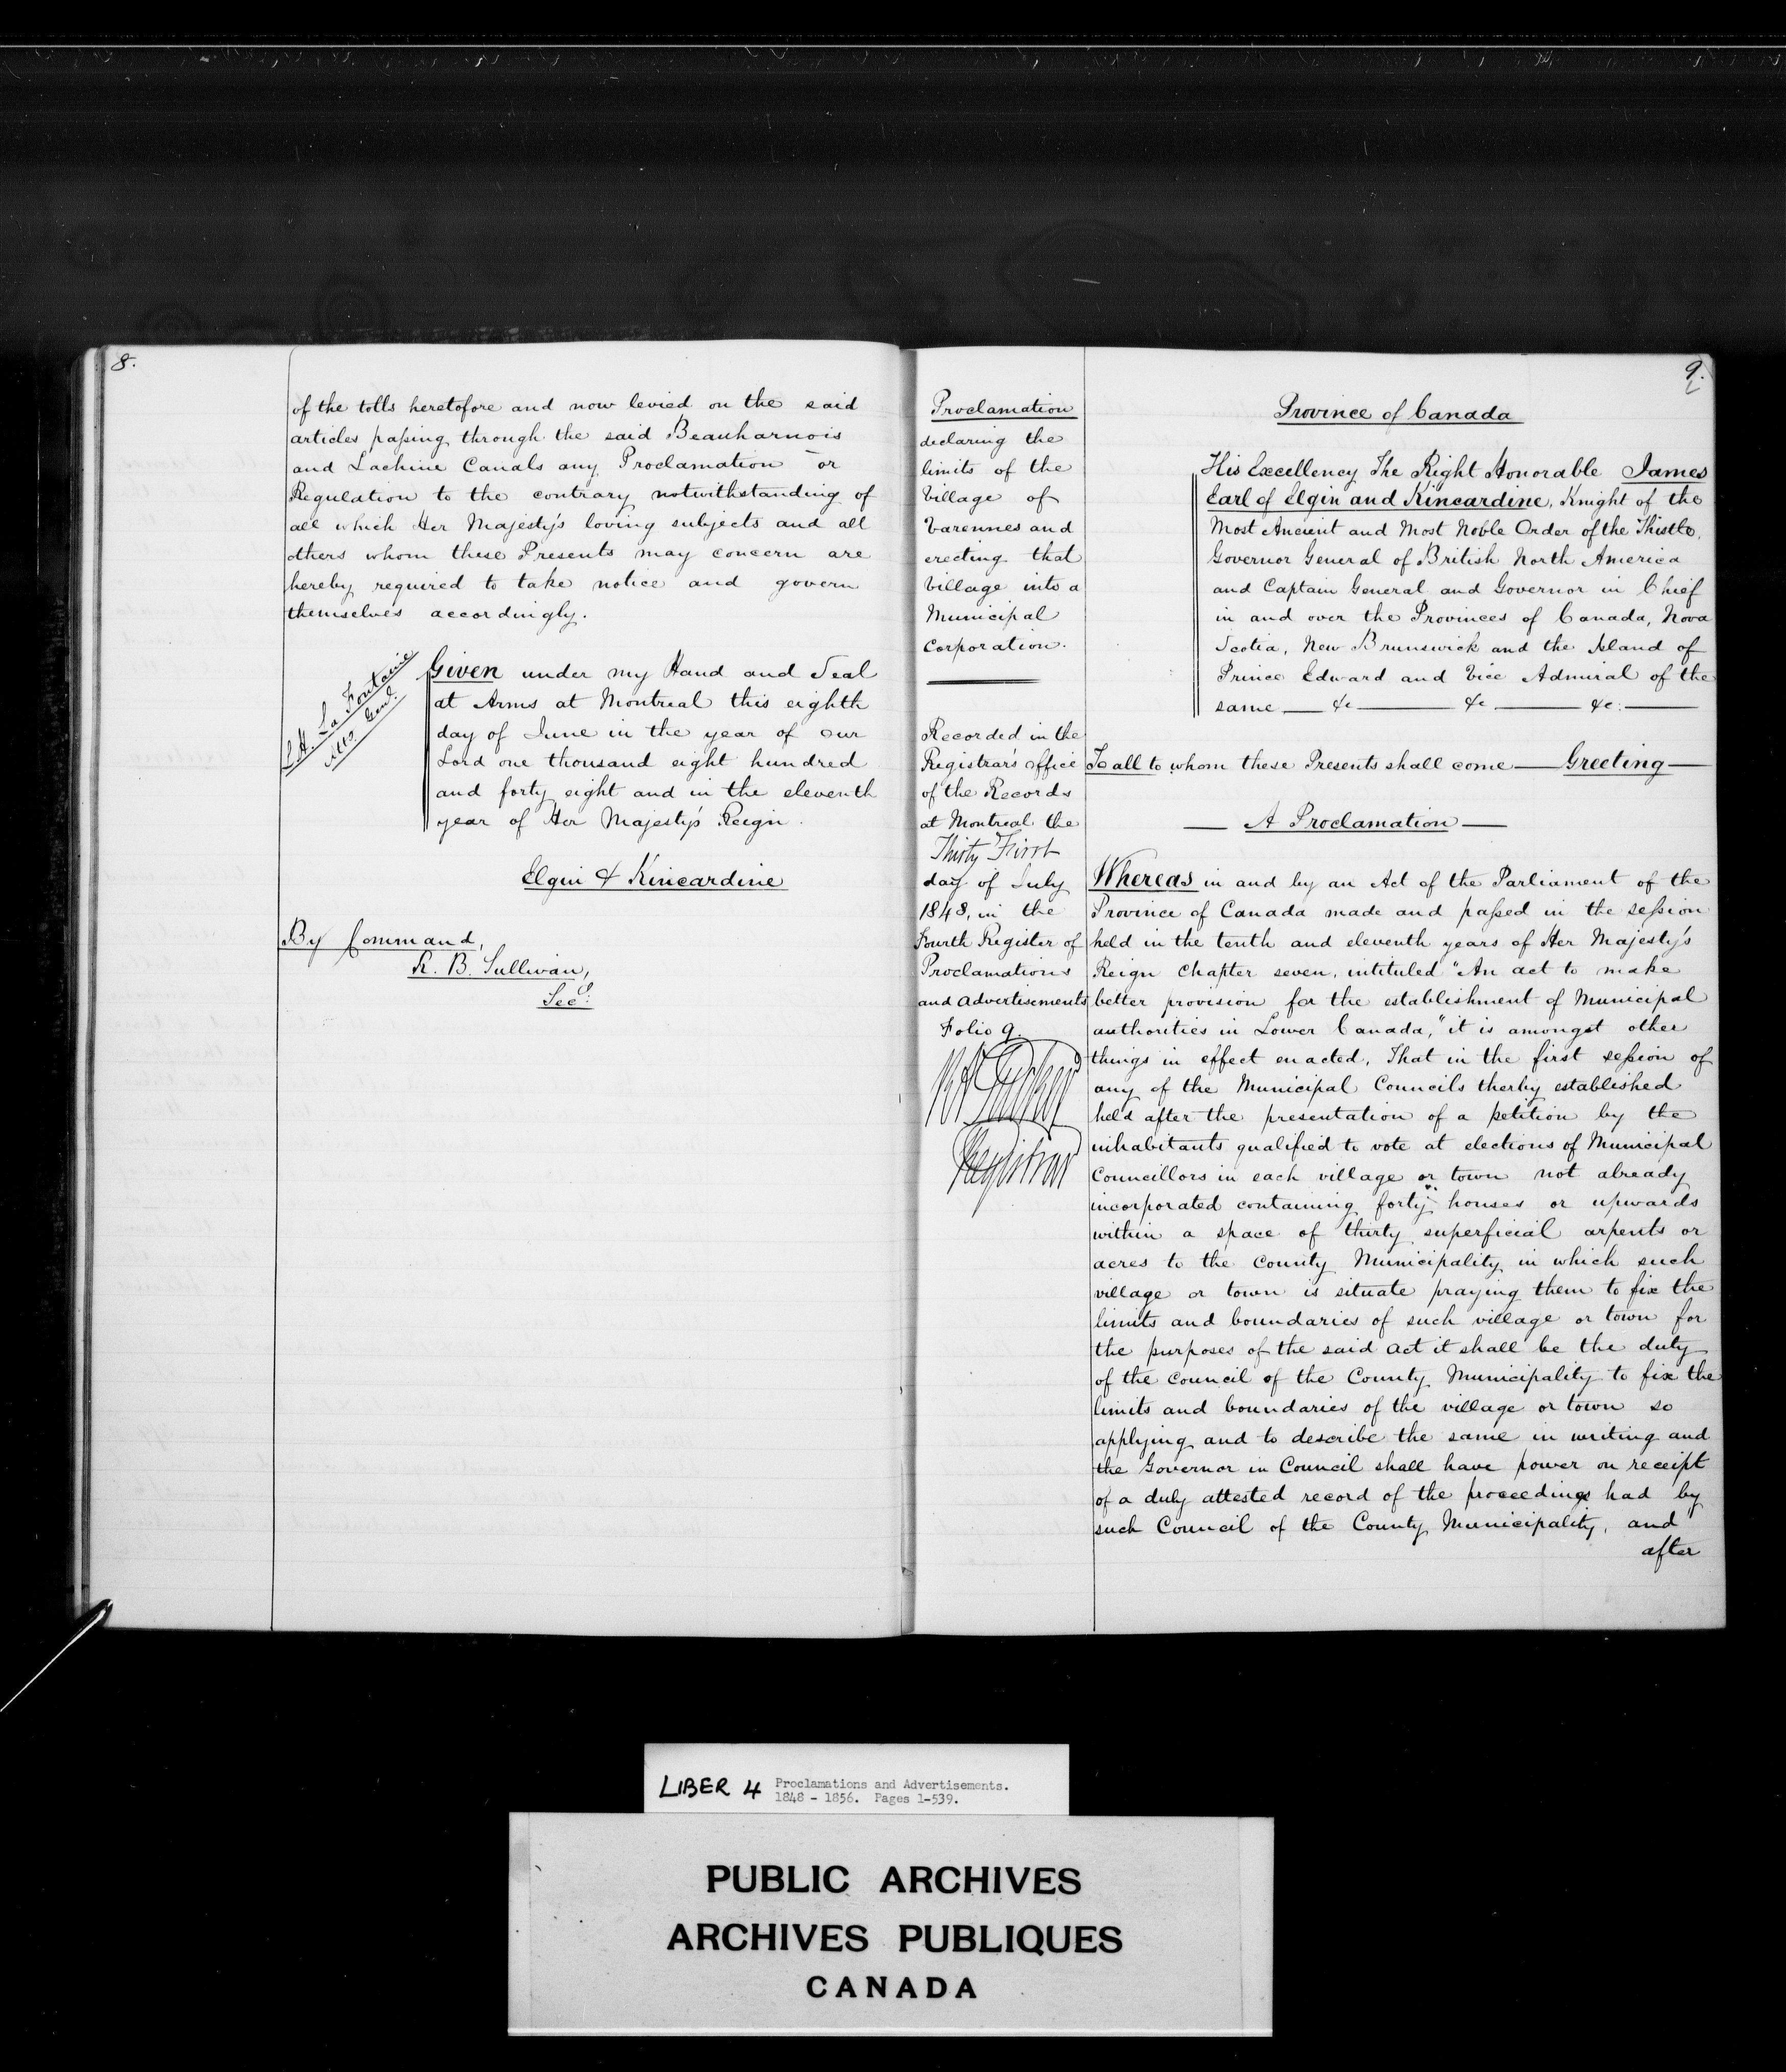 8.
of the tolls heretofore and now levied on the said
articles passing through the said Beauharnois
and Lachine Canals any Proclamation or
Regulation to the contrary notwithstanding of
all which Her Majesty's loving subjects and all
others whom these Presents may concern are
hereby required to take notice and govern
themselves accordingly.
L.H. La Fontaine
Atty Genl.
Given under my Hand and Seal
at Arms at Montreal this eighth
day of June in the year of our
Lord one thousand eight hundred
and forty eight and in the eleventh
year of Her Majesty's Reign.
Elgin & Kincardine
By Command,
R. B. Sullivan,
Secy.
9.
Proclamation
declaring the
limits of the
Village of
Varennes and
erecting that
Village into a
Municipal
Corporation.
Recorded in the
Registrar's office
of the Records
at Montreal the
Thirty First
day of July
1848, in the
Fourth Register of
Proclamations
and Advertisements
Folio 9.
Registrar
Province of Canada
His Excellency The Right Honorable James
Earl of Elgin and Kincardine, Knight of the
Most Ancient and Most Noble Order of the Thistle,
Governor General of British North America
and Captain General and Governor in Chief
in and over the Provinces of Canada, Nova
Scotia, New Brunswick and the Island of
Prince Edward and Vice Admiral of the
same — &c — &c — &c. —
To all to whom these Presents shall come — Greeting —
— A Proclamation —
Whereas in and by an Act of the Parliament of the
Province of Canada made and passed in the session
held in the tenth and eleventh years of Her Majesty's
Reign Chapter seven, intituled "An act to make
better provision for the establishment of Municipal
authorities in Lower Canada," it is amongst other
things in effect enacted, That in the first session of
any of the Municipal Councils therby established
held after the presentation of a petition by the
inhabitants qualified to vote at elections of Municipal
Councillors in each village or town not already
incorporated containing forty houses or upwards
within a space of thirty superficial arpents or
acres to the County Municipality in which such
village or town is situate praying them to fix the
limits and boundaries of such village or town for
the purposes of the said act it shall be the duty
of the Council of the County Municipality to fix the
limits and boundaries of the village or town so
applying and to describe the same in writing and
the Governor in Council shall have power on receipt
of a duly attested record of the proceedings had by
such Council of the County Municipality, and
after
LIBER 4 Proclamations and Advertisements.
1848 - 1856. Pages 1-539.
PUBLIC ARCHIVES
ARCHIVES PUBLIQUES
CANADA